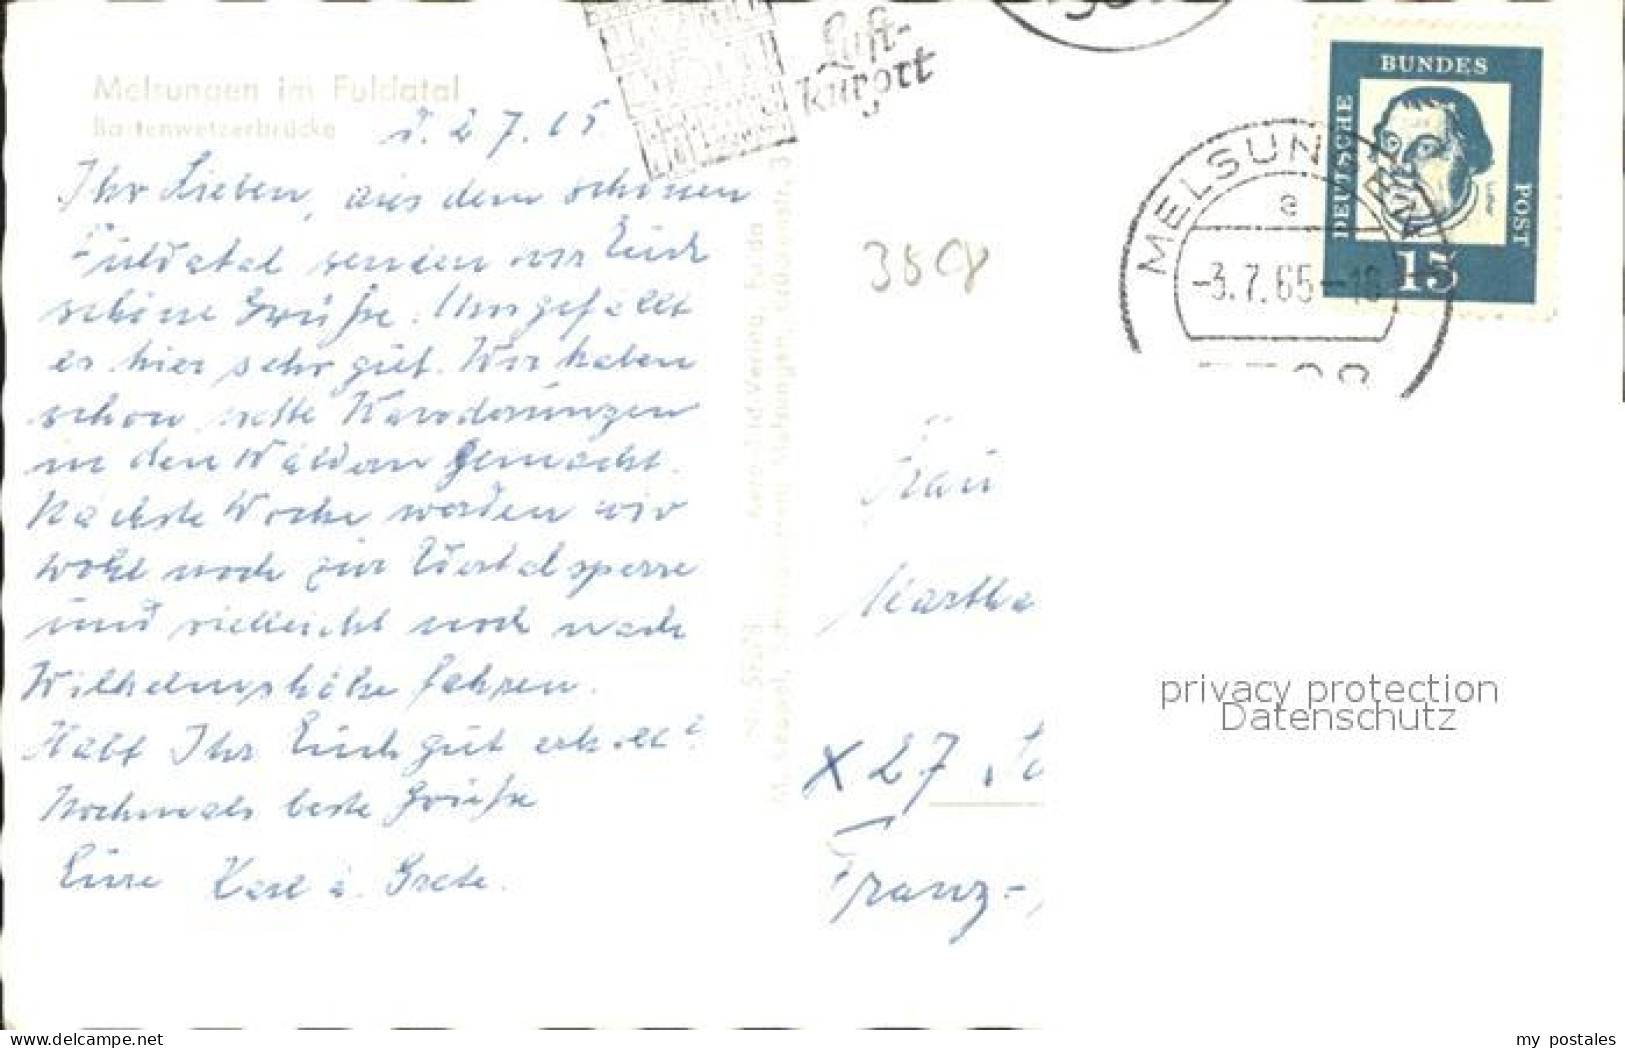 Melsungen im Fuldatal
Bartenwetzerbrücke
d. 2 7. 65
Ihr Lieben, aus dem schönen
Fuldatal senden wir Euch
schöne Grüße. Uns gefällt
es hier sehr gut. Wir haben
schon nette Wanderungen
in den Wäldern gemacht.
Nächste Woche werden wir
wohl noch zur Edertalsperre
und vielleicht noch nach
Wilhelmshöhe fahren.
Habt Ihr Euch gut erholt?
Nochmals beste Grüße
Eure Karl u. Grete.
Luft-
kurort
Aero-Bild-Verlag, Fulda
Melsungen
3508
MELSUN
a
-3.7.65-18
DEUTSCHE
BUNDES
POST
Luther
15
Frau
Martha
X 27
Franz-
privacy protection
Datenschutz
www.delcampe.net
my_postales